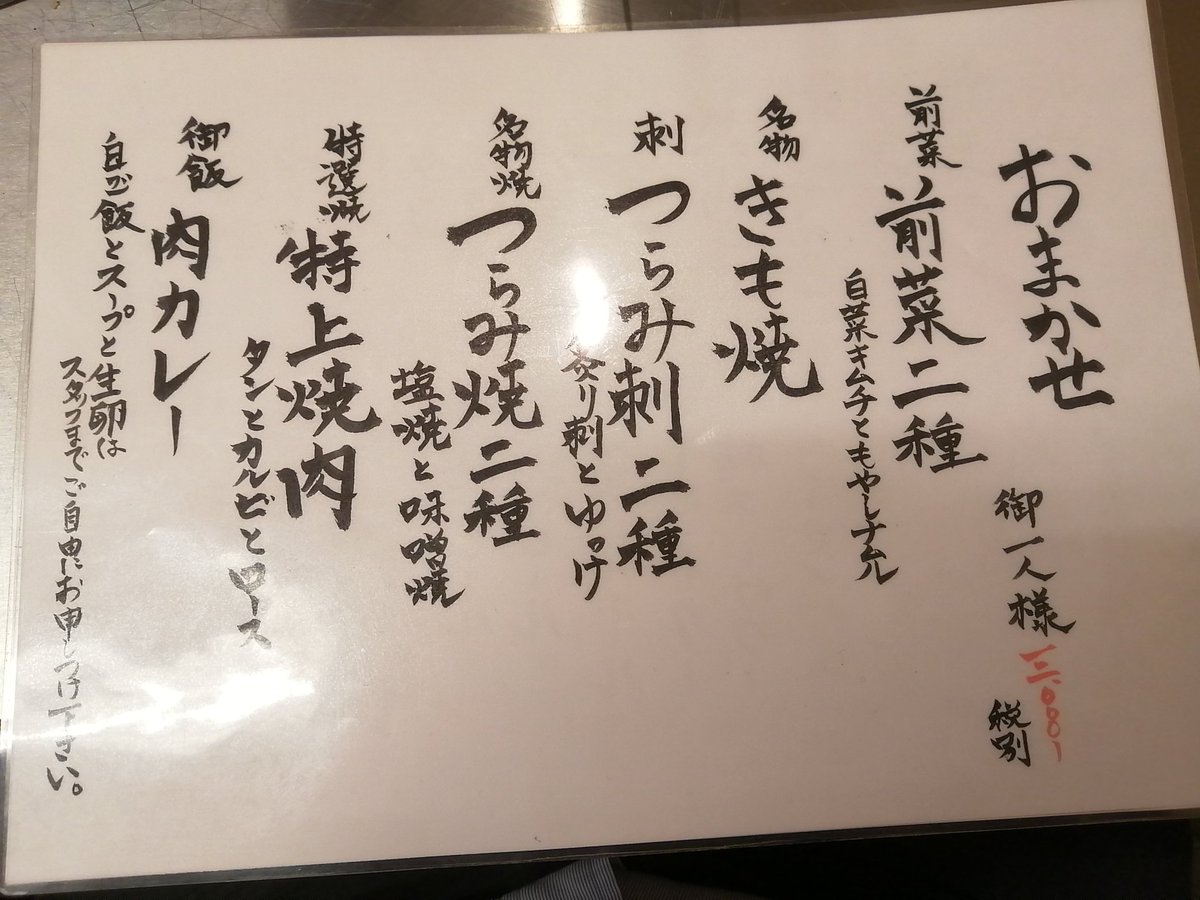 おまかせ
御一人様 一三.000-
税別
前菜 前菜二種
白菜キムチともやしナムル
名物 きも焼
刺 つらみ刺二種
炙り刺とゆっけ
名物焼 つらみ焼二種
塩焼と味噌焼
特選焼 特上焼肉
タンとカルビとロース
御飯 肉カレー
白ご飯とスープと生卵は
スタッフまでご自由にお申しつけ下さい。